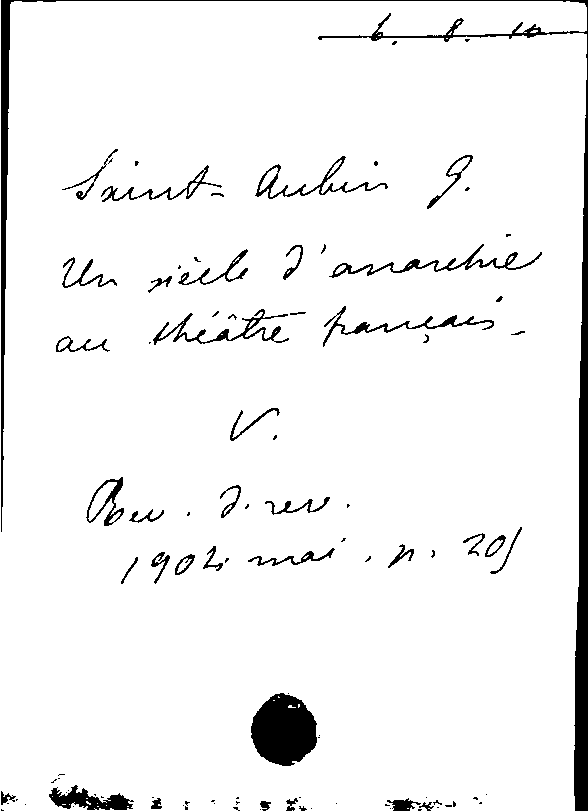 6. 8. 10
Saint-Aubin G.
Un siècle d'anarchie
au théâtre français.
V.
Rev. d. rev.
1902. mai. p. 205